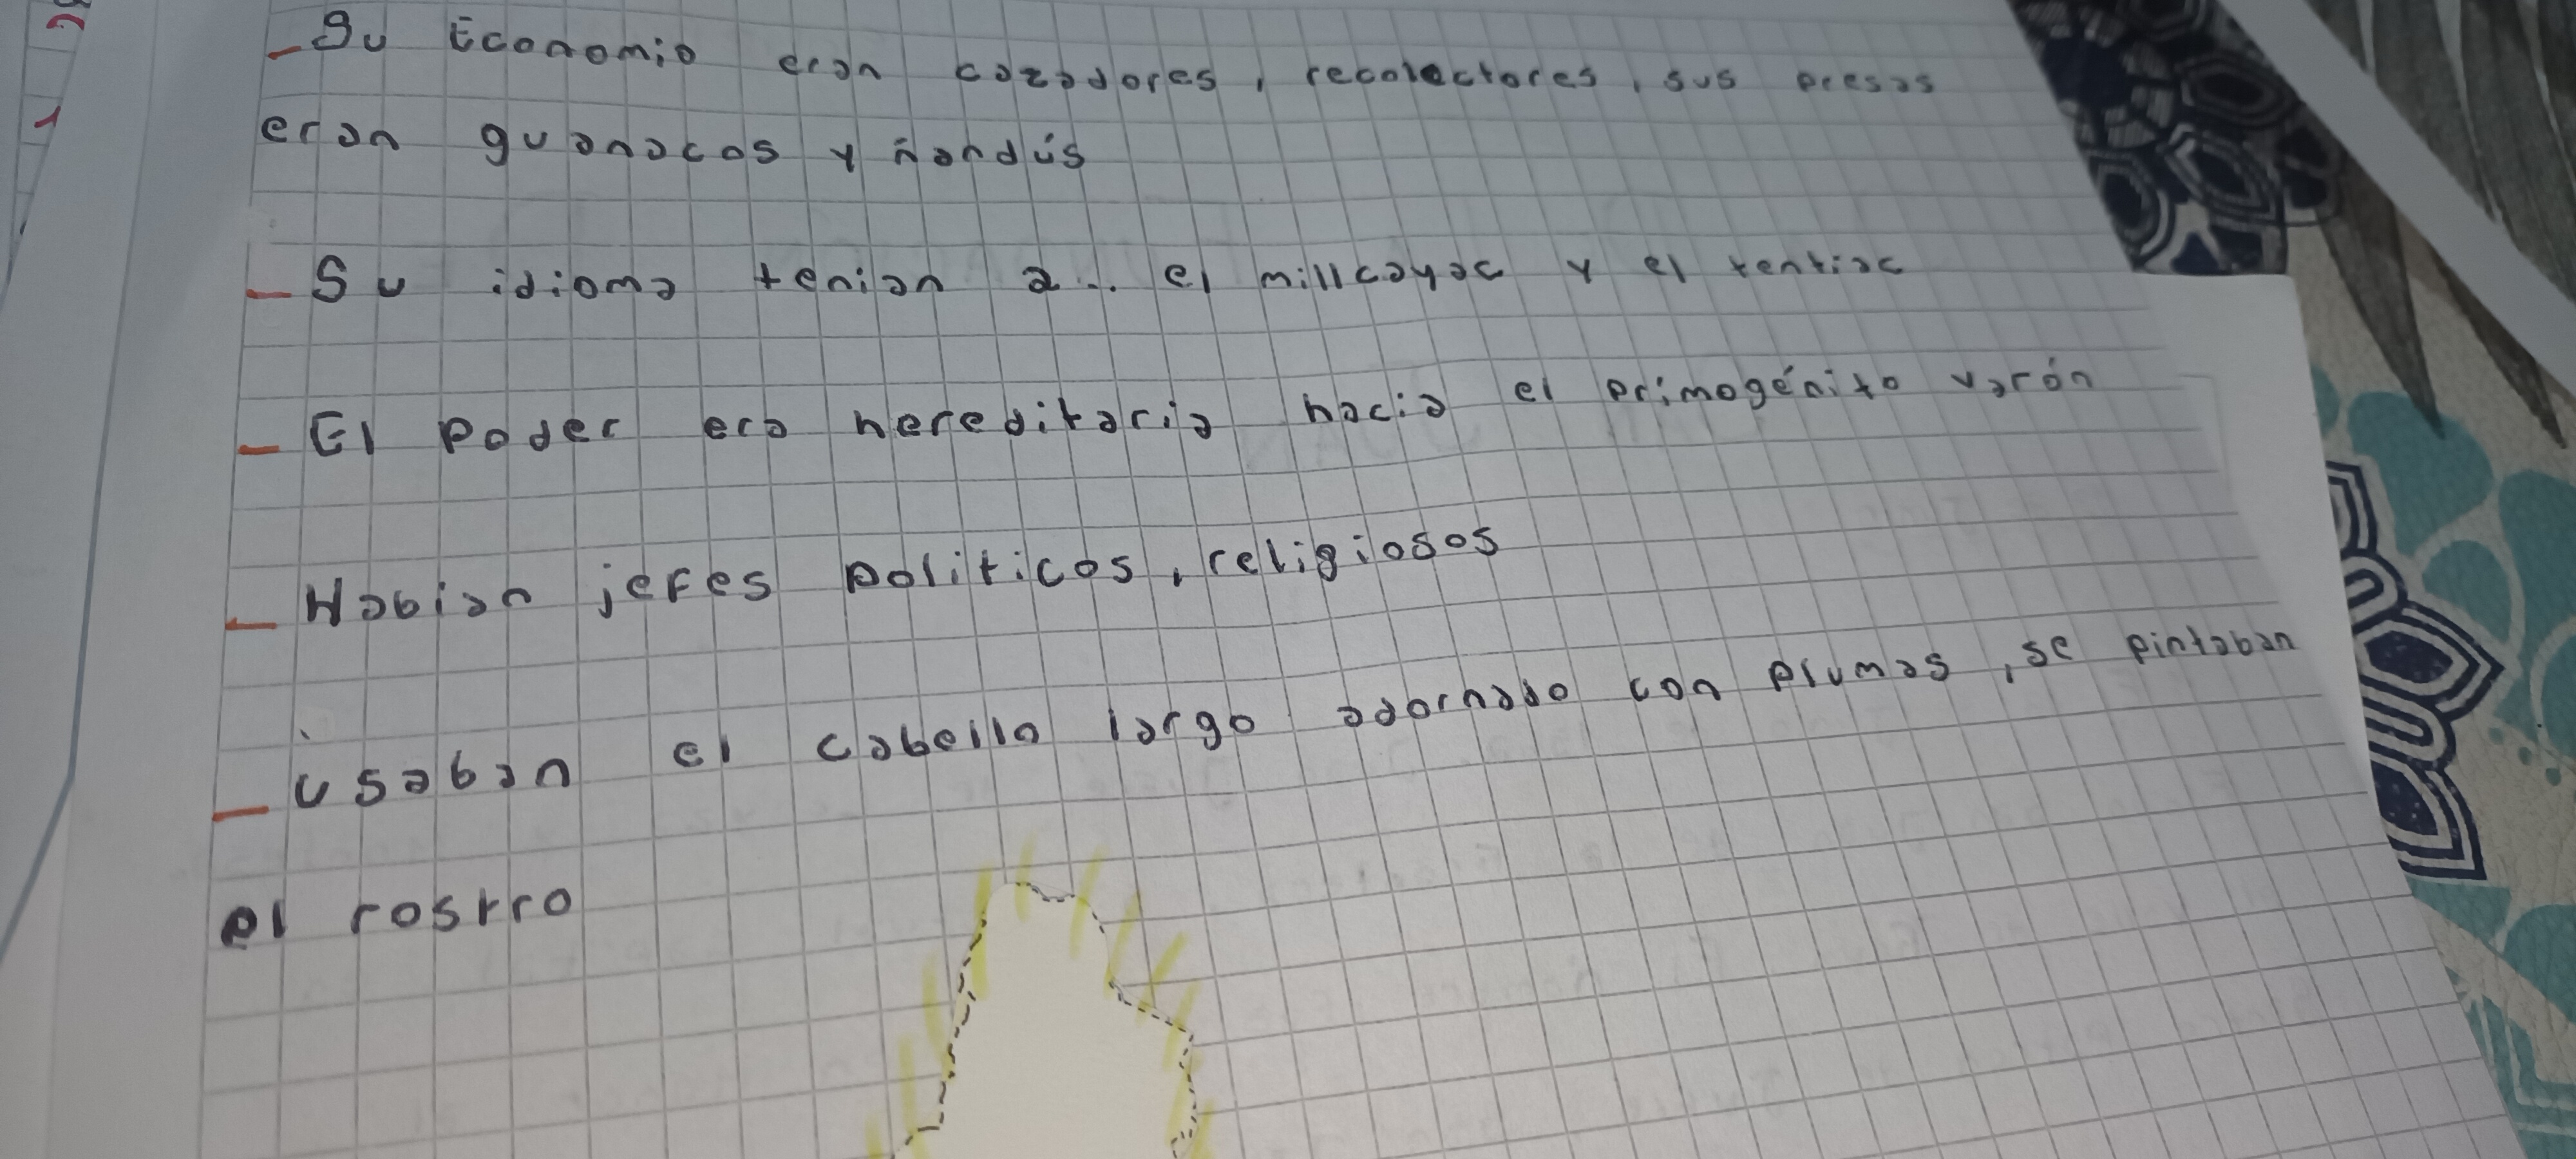 - Su Economia eran cazadores, recolectores, sus presas
eran guanacos y ñandús
- Su idioma tenian 2.. el millcayac y el tentiac
- El Poder era hereditaria hacia el primogénito varón
- Habian jefes politicos, religiosos
- usaban el cabello largo adornado con plumas, se pintaban
el rostro